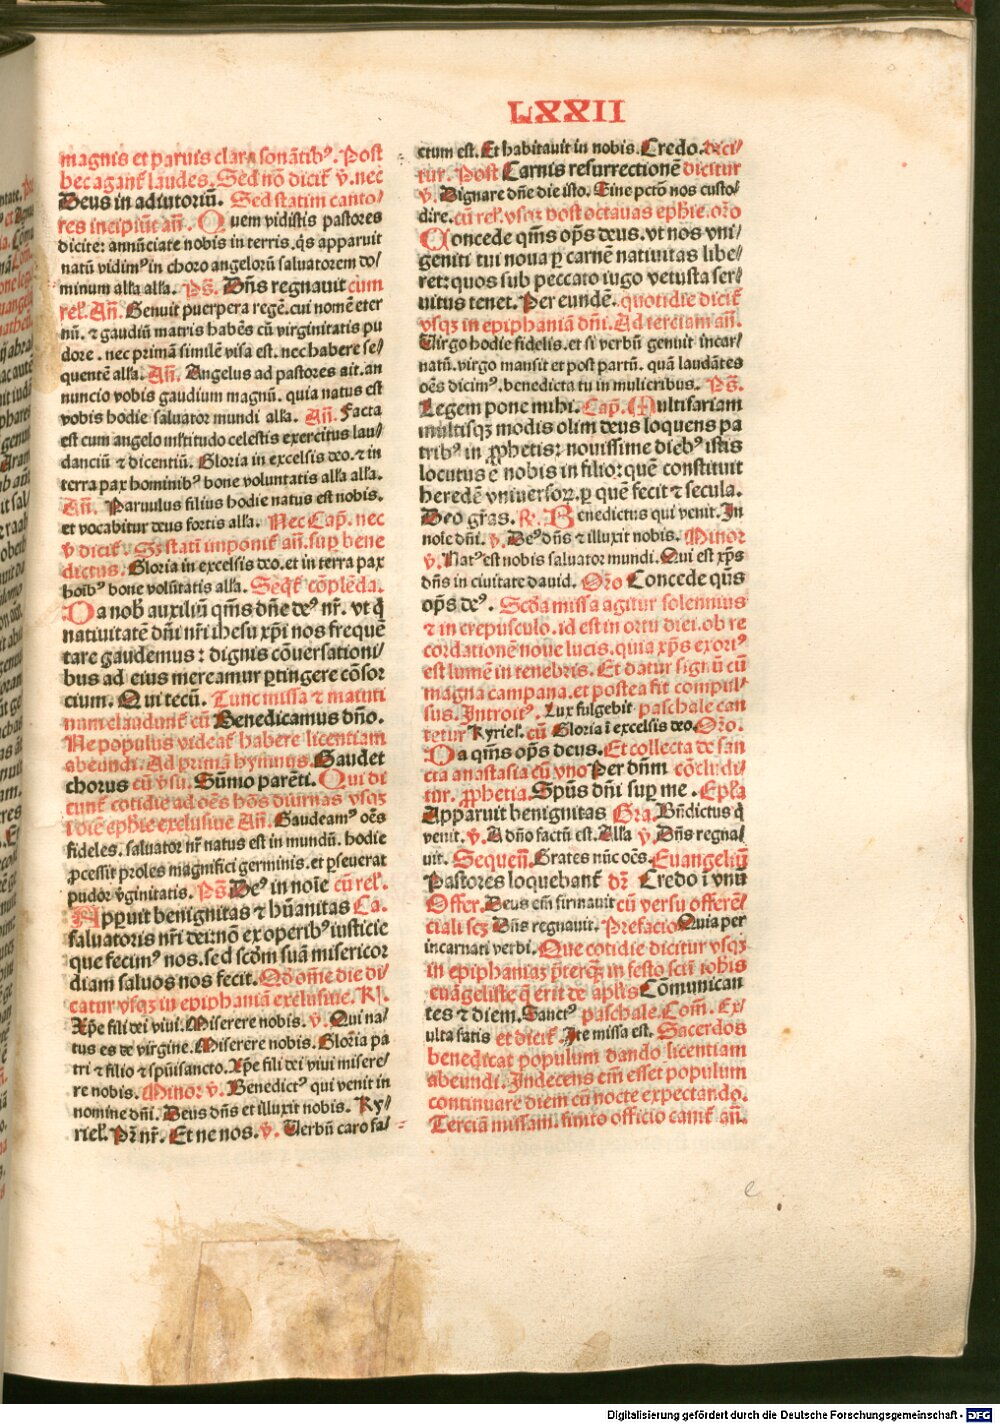 LXXII
magnis et paruis clara sonātibꝰ. Post
hec agant̄ laudes. Sed nō dicit̄ ꝟ. nec
Deus in adiutoriū. Sed statim canto⸗
res incipiūt añ. Quem vidistis pastores
dicite: annūciate nobis in terris. q̇s apparuit
natū vidimꝰ in choro angelorū saluatorem do⸗
minum alla alla. Ps̄. Dñs regnauit cum
rel̄. Añ. Genuit puerpera regē. cui nomē eter
nū. ⁊ gaudiū matris habēs cū virginitatis pu
dore. nec primā similē visa est. nec habere se⸗
quentē alla. Añ. Angelus ad pastores ait. an
nuncio vobis gaudium magnū. quia natus est
vobis hodie saluator mundi alla. Añ. Facta
est cum angelo mltitudo celestis exercitus lau⸗
danciū ⁊ dicentiū. Gloria in excelsis deo. ⁊ in
terra pax hominibꝰ bone voluntatis alla alla.
Añ. Paruulus filius hodie natus est nobis.
et vocabitur deus fortis alla. Nec Cap̄. nec
ꝟ dicit̄. Sꝫ statī imponit̄ añ. sup̄ bene
dictus. Gloria in excelsis deo. et in terra pax
hoībꝰ bone volūtatis alla. Seqt̄ cōplēda.
Da nob̄ auxiliū qm̄s dn̄e deꝰ nr̄. vt q̇
natiuitatē dn̄i nr̄i ihesu xp̄i nos frequē
tare gaudemus: dignis cōuersationi⸗
bus ad eius mereamur ꝑtingere cōsor
cium. Qui tecū. Tunc missa ⁊ matuti
num claudunt̄ cū Benedicamus dn̄o.
Ne populus videat̄ habere licentiam
abeundi. Ad primā hymnus. Gaudet
chorus cū ꝟsu. Sūmo parēti. Qui di
cunt̄ cotidie ad oēs hōs diurnas vsqꝫ
ī diē epħie exclusiue Añ. Gaudeamꝰ oēs
fideles. saluator nr̄ natus est in mundū. hodie
ꝓcessit proles magnifici germinis. et ꝑseuerat
pudor ꝟginitatis. Ps̄. Deꝰ in noīe cū rel̄.
Appuit benignitas ⁊ hūanitas Ca.
saluatoris nr̄i dei: nō ex operibꝰ iusticie
que fecimꝰ nos. sed scd̄m suā misericor
diam saluos nos fecit. Qd̄ om̄e die di⸗
catur vsqꝫ in epiphaniā exclusiue. R̄.
Xp̄e fili dei viui. Miserere nobis. ꝟ. Qui na⸗
tus es de virgine. Miserere nobis. Gloria pa
tri ⁊ filio ⁊ spūisancto. Xp̄e fili dei viui misere⸗
re nobis. Minor ꝟ. Benedictꝰ qui venit in
nomine dn̄i. Deus dn̄s et illuxit nobis. Ky⸗
riel̄. Pr̄ nr̄. Et ne nos. ꝟ. Verbū caro fa⸗
ctum est. Et habitauit in nobis. Credo. dici⸗
tur. Post Carnis resurrectionē dicitur
ꝟ. Dignare dn̄e die isto. Sine pctō nos custo⸗
dire. cū rel̄. vsqꝫ post octauas epħie. oro
Concede qm̄s op̄s deus. vt nos vni⸗
geniti tui noua ꝑ carnē natiuitas libe⸗
ret: quos sub peccato iugo vetusta ser⸗
uitus tenet. Per eundē. quotidie dicit̄
vsqꝫ in epiphaniā dn̄i. Ad terciam añ.
Virgo hodie fidelis. et si verbū genuit incar⸗
natū. virgo mansit et post partū. quā laudātes
oēs dicimꝰ. benedicta tu in mulieribus. Ps̄.
Legem pone mihi. Cap̄. Multifariam
multisqꝫ modis olim deus loquens pa
tribꝰ in ꝓphetis: nouissime diebꝰ istis
locutus ē nobis in filio: quē constituit
heredē vniuersoꝝ. ꝑ quē fecit ⁊ secula.
Deo gr̄as. R̄. Benedictus qui venit. In
noīe dn̄i. ꝟ. Deꝰ dn̄s ⁊ illuxit nobis. Minor
ꝟ. Natꝰ est nobis saluator mundi. Qui est xp̄s
dn̄s in ciuitate dauid. Oro Concede qm̄s
op̄s deꝰ. Scd̄a missa agitur solennius
⁊ in crepusculo. id est in ortu diei. ob re
cordationē noue lucis. quia xp̄s exoriꝰ
est lumē in tenebris. Et datur signū cū
magna campana. et postea fit compul⸗
sus. Introitꝰ. Lux fulgebit paschale can
tetur Kyriel̄. cū Gloria ī excelsis deo. Oro.
Da qm̄s op̄s deus. Et collecta de san
cta anastasia cū vno Per dn̄m cōcludi⸗
tur. ꝓphetia. Spūs dn̄i sup̄ me. Epl̄a
Apparuit benignitas Gra. Bn̄dictus q̇
venit. ꝟ. A dn̄o factū est. Alla ꝟ. Dn̄s regna⸗
uit. Sequen̄. Grates nūc oēs. Euangeliū
Pastores loquebant̄ dr̄ Credo ī vnū
Offer. Deus em̄ firmauit cū versu offerē⸗
ciali scꝫ Dn̄s regnauit. Prefacio Quia per
incarnati verbi. Que cotidie dicitur vsqꝫ
in epiphanias p̄terqꝫ in festo scī iohīs
euāgeliste q̄ erit de apl̄is Cōmunican
tes ⁊ diem. Sanctꝰ paschale. Com̄. Ex⸗
ulta satis et dicit̄. Ite missa est. Sacerdos
benedicat populum dando licentiam
abeundi. Indecens em̄ esset populum
continuare diem cū nocte expectando.
Terciā missam. finito officio canit̄ añ.
e
Digitalisierung gefördert durch die Deutsche Forschungsgemeinschaft - DFG